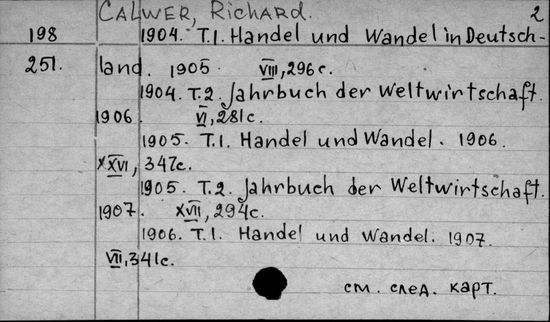 CALWER, Richard. 2
198 1904. T.1. Handel und Wandel in Deutsch-
251. land. 1905 VIII, 296c.
1904. T.2. Jahrbuch der Weltwirtschaft.
1906. VI, 281c.
1905. T.1. Handel und Wandel. 1906.
XXVI, 347c.
1905. T.2. Jahrbuch der Weltwirtschaft.
1907. XVII, 294c.
1906. T.1. Handel und Wandel. 1907.
VII, 341c.
см. след. карт.